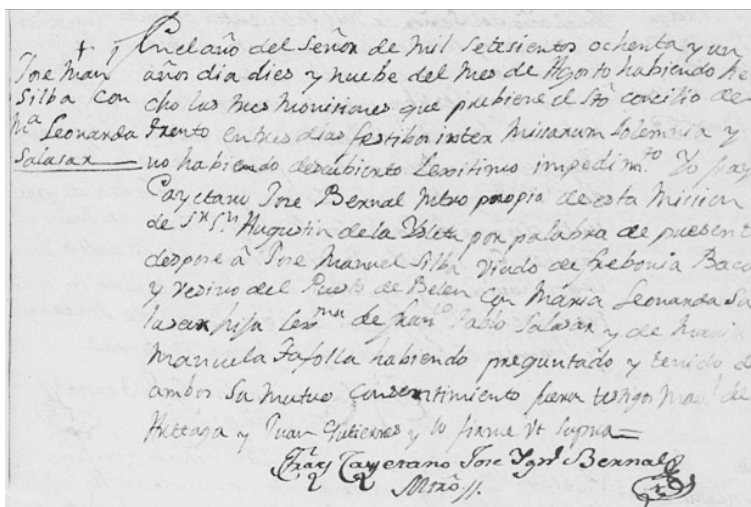 Jose Man
Silba con
Ma Leonarda
Salasar
En el año del Señor de mil setesientos ochenta y un
años dia dies y nuebe del mes de Agosto habiendo he
cho las tres monisiones que prebiene el Sto concilio de
trento en tres dias festibos inter missarum solemnia y
no habiendo descubierto lexitimo impedimto Yo fray
Cayetano Jose Bernal mtro propio de esta Mission
de Sn Sn Augustin de la Ysleta por palabra de present
despose â Jose Manuel Silba viudo de frebonia Baca
y vesino del Puesto de Belen con Maria Leonarda Sa
lasar hija de franco Pablo Salasar y de Maria
Manuela Tafolla habiendo preguntado y tenido de
ambos su mutuo consentimiento fueron testigos Manl de
Arteaga y Juan Gutierres y lo firme Vt supra
Fray Cayetano Jose Ygno Bernal
Mtro